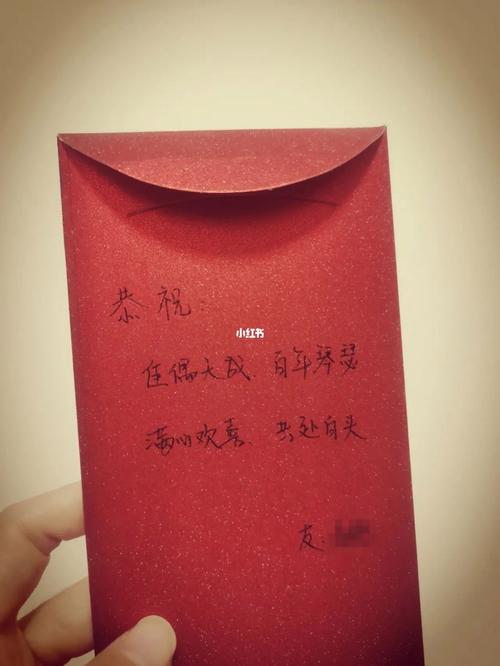 恭祝：
小红书
佳偶天成、百年琴瑟
满心欢喜、共赴白头
友：